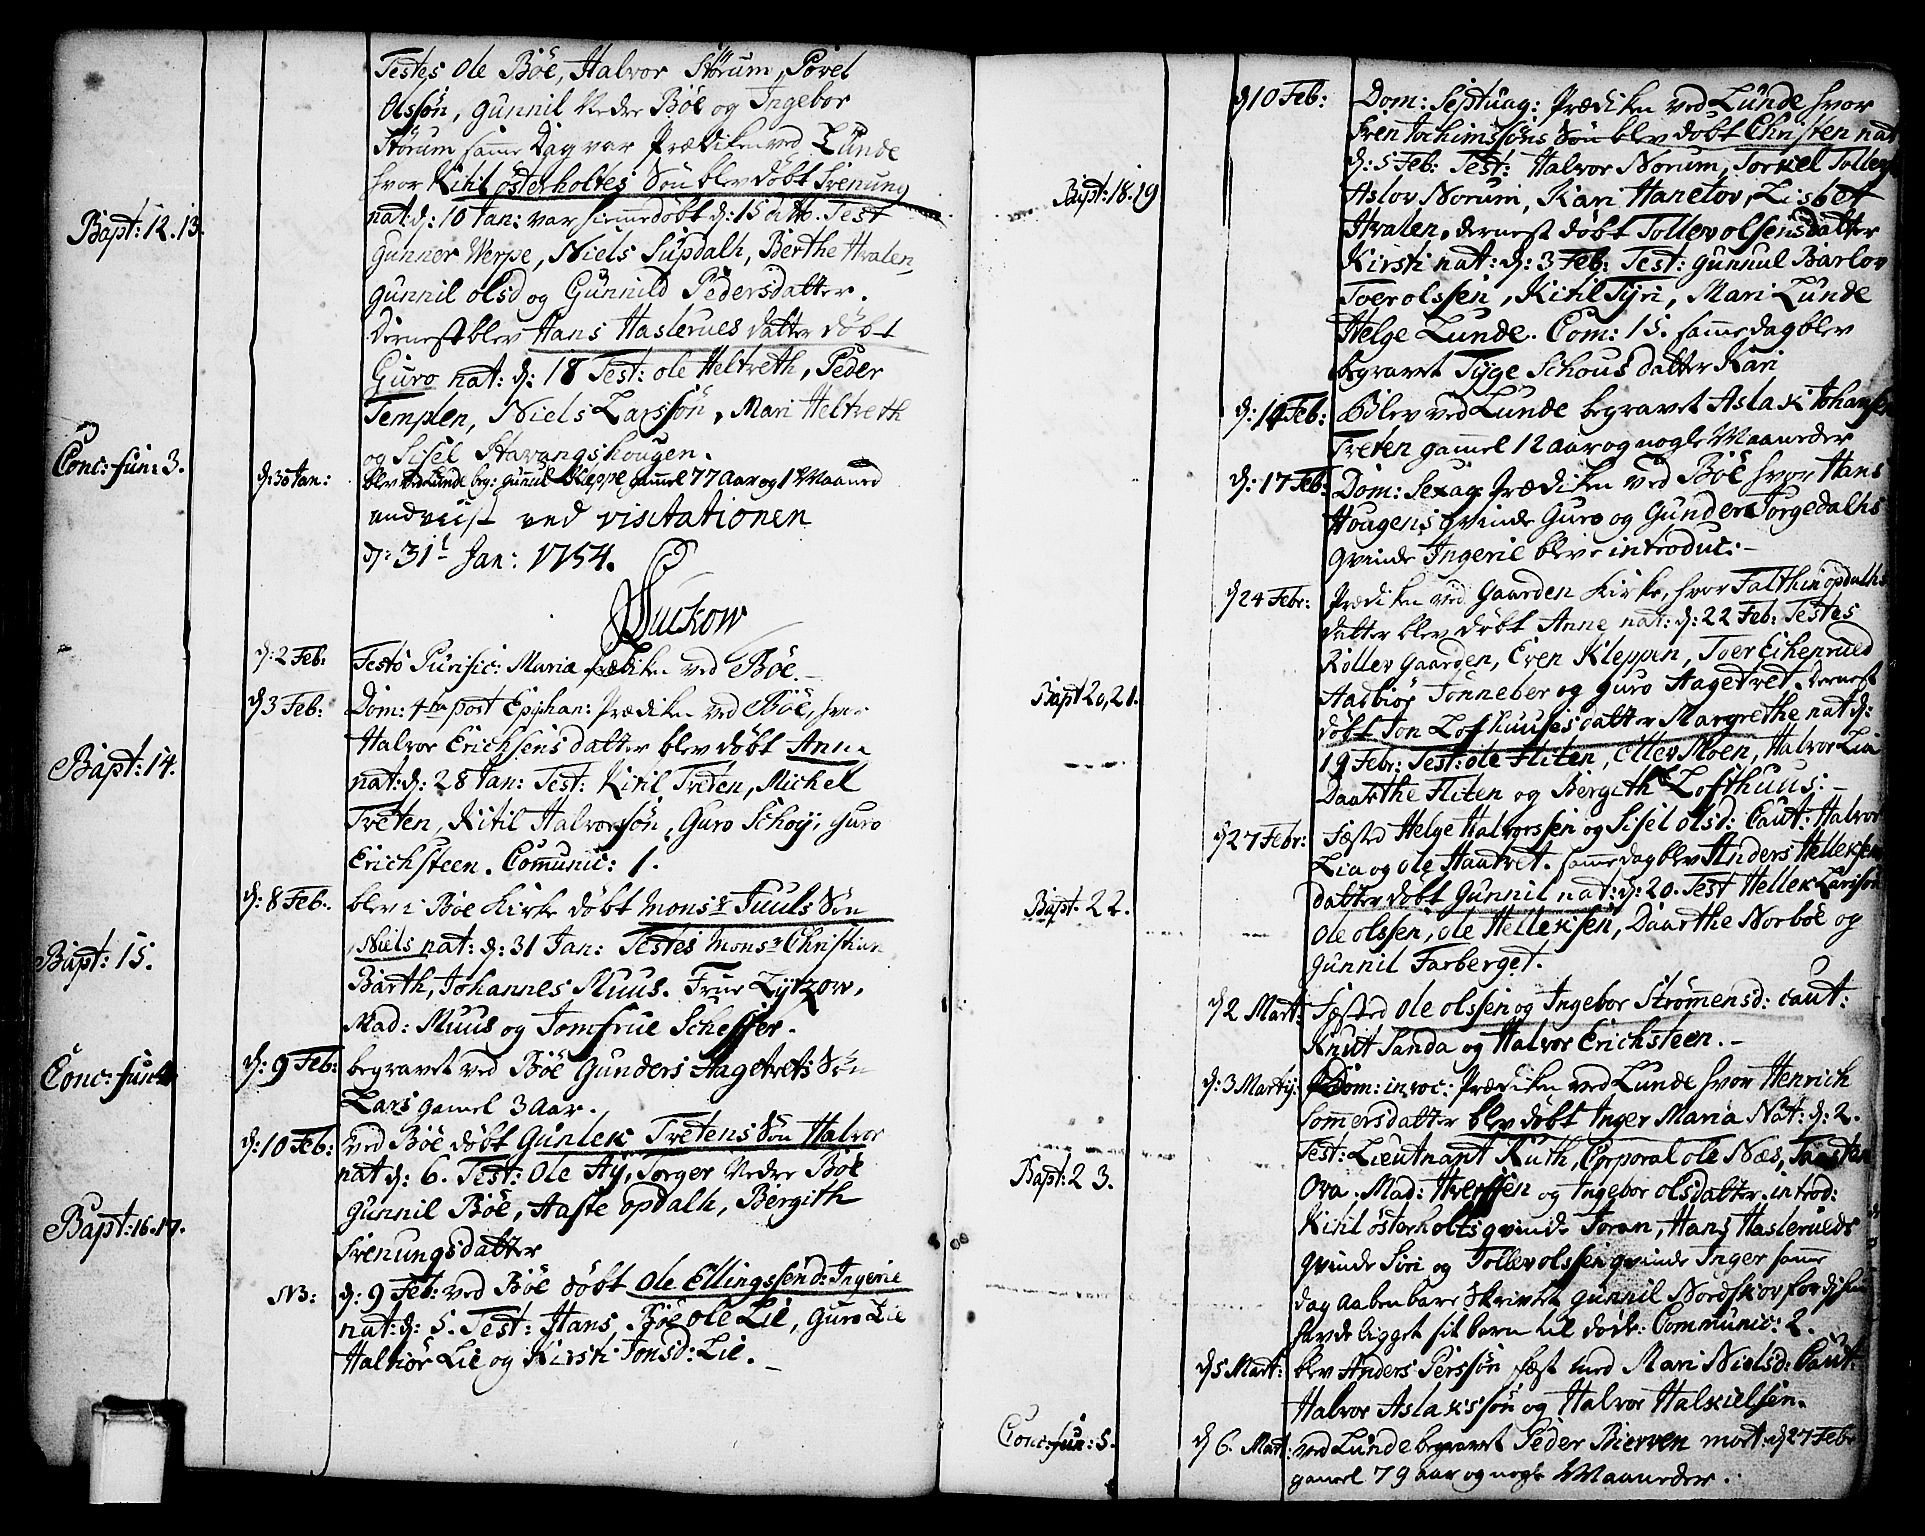 Testes Ole Böe, Halvor Störum, Povel
Olssön, Gunnil Nedre Böe og Ingebor
Störum samme Dag var Prædiken ved Lunde
hvor Kitil Österholtes Sön blev döbt Svenung
Bapt: 12. 13.
nat: d: 10 Jan: var hiemmedöbt d: 15 dito. Test
Gunner Werpe, Niels Supdalh, Berthe Hvalen,
Gunnil Olsd og Gunnild Pedersdatter.
Dernest blev Hans Haslerues datter döbt
Guro nat: d: 18 Test: Ole Heltveth, Peder
Templen, Niels Larssön, Mari Heltveth
og Sisel Stavangshougen.
Conc: fun: 3.
d: 30 Jan: blev ved Lunde beg: Gunnil Kleppe gammel 77 aar og 1 Maaned
Undviist ved visitationen
d: 31t Jan: 1754.
Suckow
d: 2 Feb: Festo Purific: Mariæ Prædiken ved Böe.
d 3 Feb: Dom: 4ta post Epiphan: Prædiken ved Böe, hvor
Halvor Erichsens datter blev döbt Anne
Bapt: 14.
nat: d: 28 Jan: Test: Kitil Treten, Michel
Treten, Kitil Halvorssön, Guro Schoy, Guro
Erichsteen. Communic: 1.
d: 8 Feb: blev i Böe Kirke döbt Monsr Juuls Sön
Bapt: 15.
Niels nat: d: 31 Jan: Testes Monsr Christian
Barth, Johannes Muus. Frue Lytzow,
Mad: Muus og Jomfrue Scheffer.
Conc: fun: 4
d: 9 Feb: begravet ved Böe Gunders Aagetvets Sön
Lars gamel 3 Aar.
d: 10 Feb: ved Böe döbt Gunlek Tretens Sön Halvor
nat d: 6. Test: Ole Aÿ, Torger Nedre Böe
Bapt: 16. 17.
Gunnil Böe, Aaste Opdalh, Bergith
Svenungsdatter
NB: d: 9 Feb: ved Böe döbt Ole Ellingssens d: Ingerie
nat: d: 5. Test: Hans Böe Ole Lie, Guro Lie
Halvör Lie og Kirsti Jonsd: Lie.
d 10 Feb: Dom: Septuag: Prædiken ved Lunde hvor
Sven Jochimssöns Sön blev döbt Christen nat
d: 5 Feb: Test: Halvor Norum, Torkel Tollevs
Bapt: 18. 19
Aslov Norum, Kari Hanetov, Lisbet
Hvalen. dernest döbt Tollev Olsens datter
Kirsti nat: d: 3 Feb: Test: Gunnul Barlov
Tver Olssen, Kitil Tÿri, Mari Lunde
Helge Lunde. Com: 15. samme dag blev
begravet Tÿge Schous datter Kari
d: 14 Feb: Blev ved Lunde begravet Aslak Johansen
Treten gammel 12 aar og nogle Maaneder
d: 17 Feb: Dom: Sexag: Prædiken ved Böe hvor Hans
Hougens Qvinde Guro og Gunder Torgedalhs
Qvinde Ingerie bleve introduc:
d 24 Febr: Prædiken ved Gaarden Kirke, hvor Falthin Opdalhs
datter blev döbt Anne nat: d: 22 Feb: Testes
Rollev Gaarden, Even Kleppen, Tver Eikenrued
Bapt 20, 21.
Aasbiör Tonneber og Guro Hagetvet. Dernest
döbt Jon Lofthuuses datter Margrethe nat d:
19 Febr: Test: Ole Fliten, Ellev Moen, Halvor Lia
Daarthe Fliten og Bergith Lofthuus.
d 27 Febr: Fæsted Helge Halvorssen og Sisel Olsd: Caut: Halvor
Lia og Ole Haatvet. samme dag blev Anders Helleksens
Bapt: 22.
datter döbt Gunnil nat: d: 20. Test Hellek Larssön
Ole Olssen, Ole Hellekssen, Daarthe Norböe og
Gunnil Farberget.
d 2 Mart: Fæsted Ole Olssen og Ingebor Strömmensd: Caut:
Knut Sanda og Halvor Erichsteen.
d: 3 Martij: Dom: invoc: Prædiken ved Lunde hvor Henrich
Sommers datter blev döbt Inger Maria Nat: d: 2.
Bapt: 23.
Test: Lieutnant Ruth, Corporal Ole Næs, Taasten
Ora. Mad: Iverssen og Ingebor Olsdatter. introd:
Kitil Österholts Qvinde Joran, Hans Haslerueds
Qvinde Siri og Tollev Olssens Qvinde Inger samme
dag aabenbare Skriftet Gunnil Nordskov, fordj hun
havde ligget sit barn til döde. Communic: 2.
d 5 Mart: blev Anders Perssön fæst med Mari Nielsd: Caut:
Halvor Aslakssön og Halvor Halkielsen.
Conc: fun: 5.
d 6. Mart: ved Lunde begravet Peder Bierven mort: d 27 Febr
gamel 79 aar og nogle Maaneder.